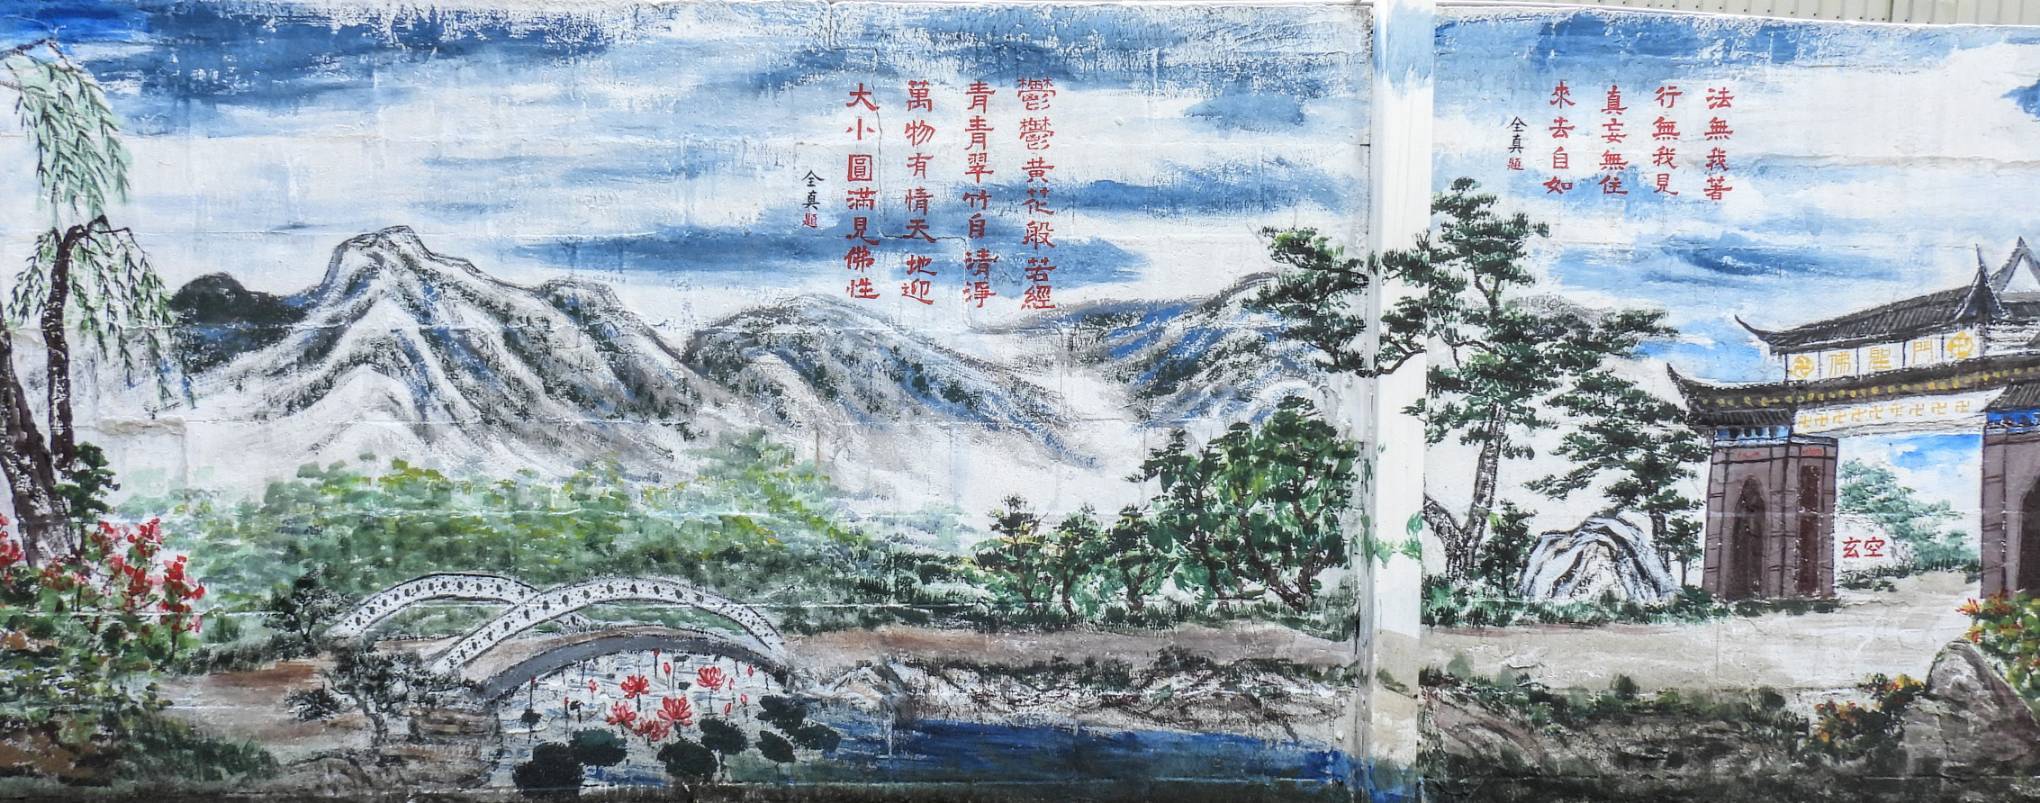 鬱鬱黃花般若經
青青翠竹自清淨
萬物有情天地迎
大小圓滿見佛性
全真題
法無我著
行無我見
真妄無住
來去自如
全真題
卍佛聖門卍
玄空